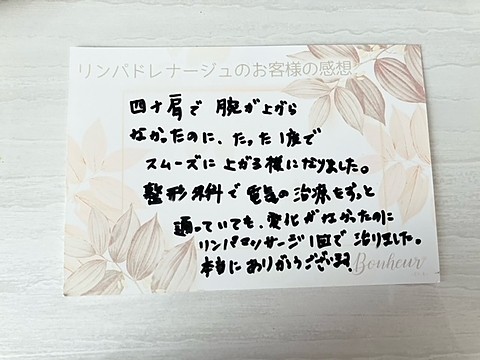 リンパドレナージュのお客様の感想
四十肩で 腕が上がら
なかったのに、たった1度で
スムーズに上がる様になりました。
整形外科で電気の治療をずっと
通っていても、変化がなかったのに
リンパマッサージ1回で治りました。
本当にありがとうございます
Bonheur